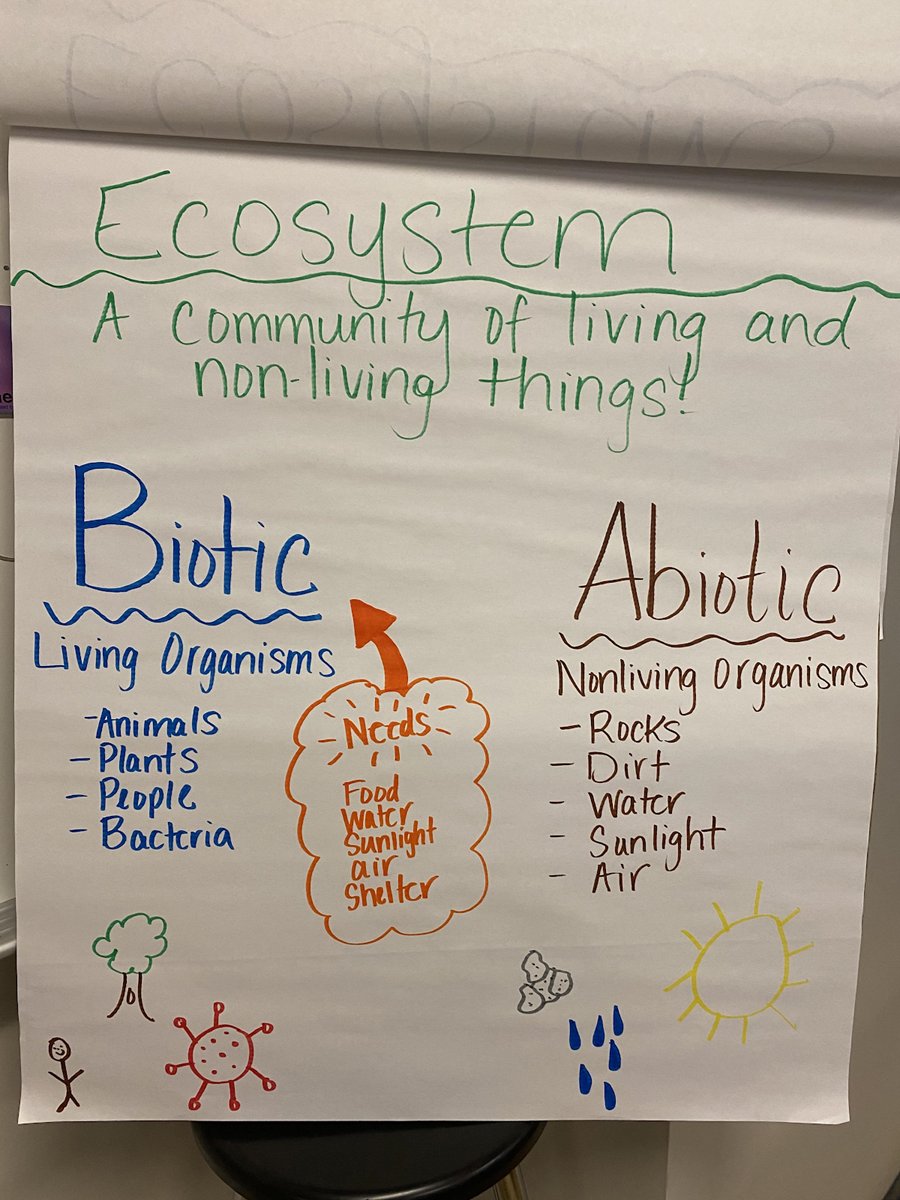 Ecosystem
A community of living and
non-living things!
Biotic
Living Organisms
-Animals
- Plants
- People
- Bacteria
Needs
Food
Water
Sunlight
air
Shelter
Abiotic
Nonliving Organisms
- Rocks
- Dirt
- Water
- Sunlight
- Air